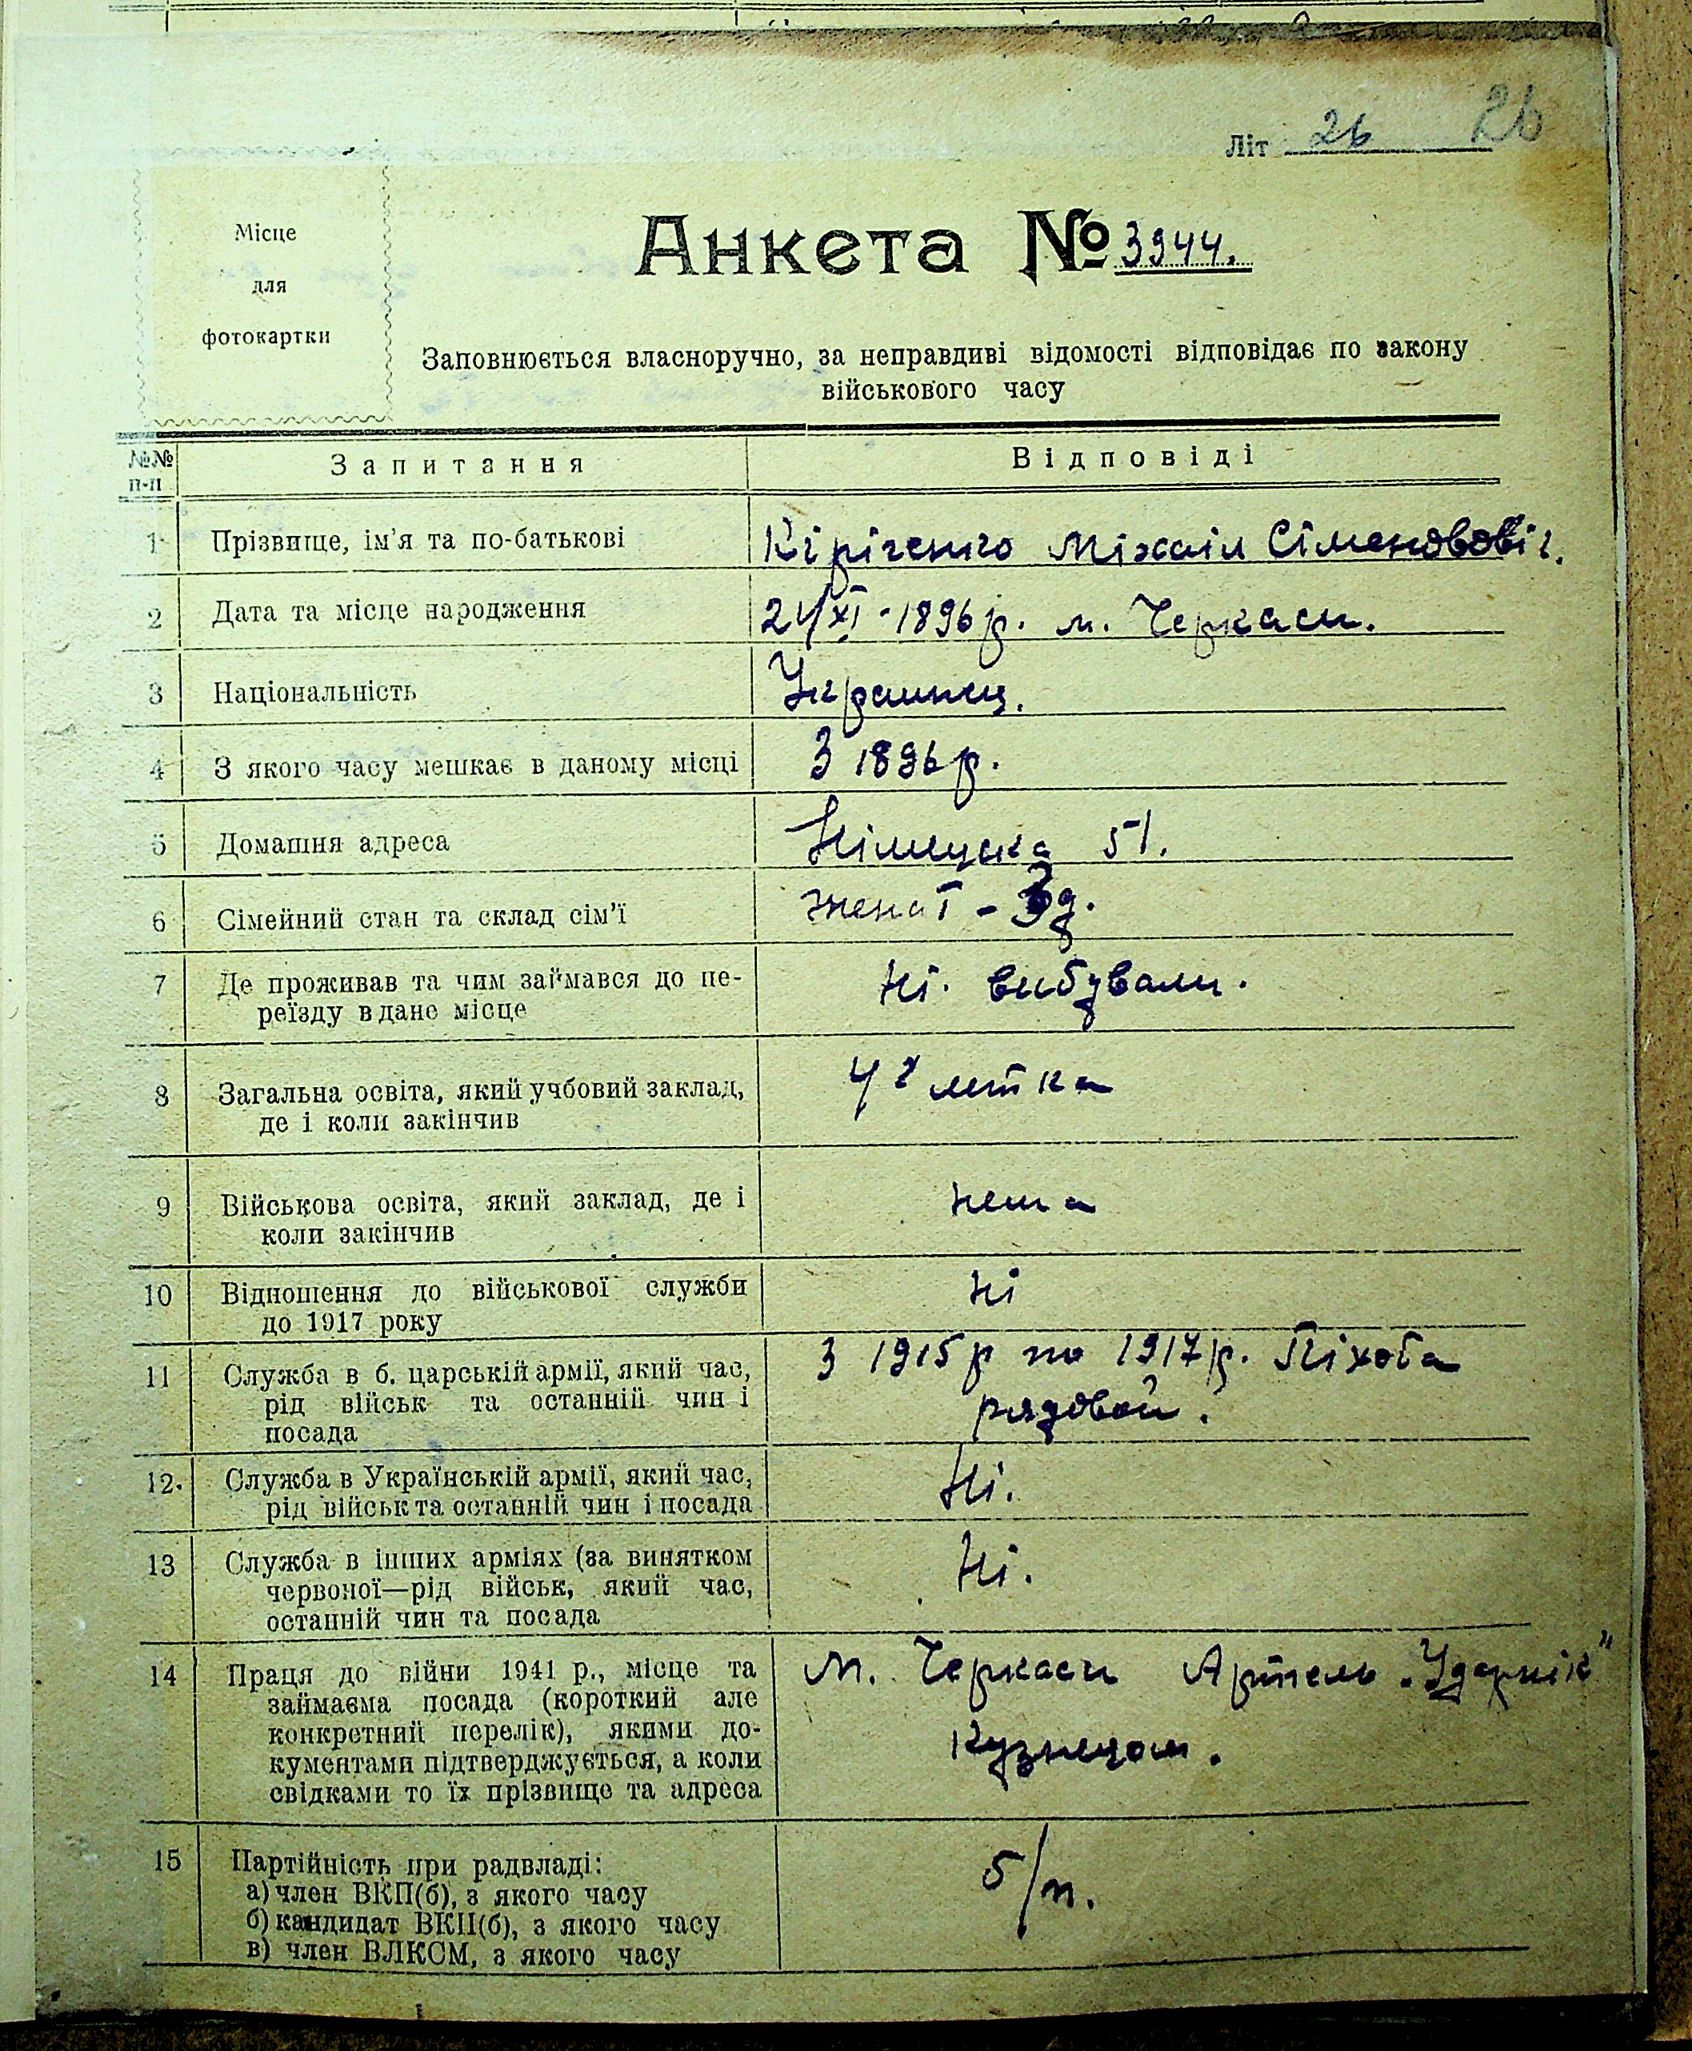 Літ 26 26
Місце
для
фотокартки
Анкета № 3944.
Заповнюється власноручно, за неправдиві відомості відповідає по закону
військового часу
№№
п-п
Запитання
Відповіді
1 Прізвище, ім'я та по-батькові Кіріченко Міхаіл Сіменововіч.
2 Дата та місце народження 24/XI - 1896 р. м. Черкаси.
3 Національність Украинец.
4 З якого часу мешкає в даному місці З 1896 р.
5 Домашня адреса Німецька 51.
6 Сімейний стан та склад сім'ї женат - 3 д.
7 Де проживав та чим займався до пе-
реїзду в дане місце
Ні. вибували.
8 Загальна освіта, який учбовий заклад,
де і коли закінчив
4х летка
9 Військова освіта, який заклад, де і
коли закінчив
нема
10 Відношення до військової служби
до 1917 року
Ні
11 Служба в б. царській армії, який час,
рід військ та останній чин і
посада
З 1915 р по 1917 р. Піхота
рядовой.
12. Служба в Українській армії, який час,
рід військ та останній чин і посада
Ні.
13 Служба в інших арміях (за винятком
червоної—рід військ, який час,
останній чин та посада
Ні.
14 Праця до війни 1941 р., місце та
займаєма посада (короткий але
конкретний перелік), якими до-
кументами підтверджується, а коли
свідками то їх прізвище та адреса
м. Черкаси Артель „Ударнік"
Кузнецом.
15 Партійність при радвладі:
а) член ВКП(б), з якого часу
б) кандидат ВКП(б), з якого часу
в) член ВЛКСМ, з якого часу
б/п.